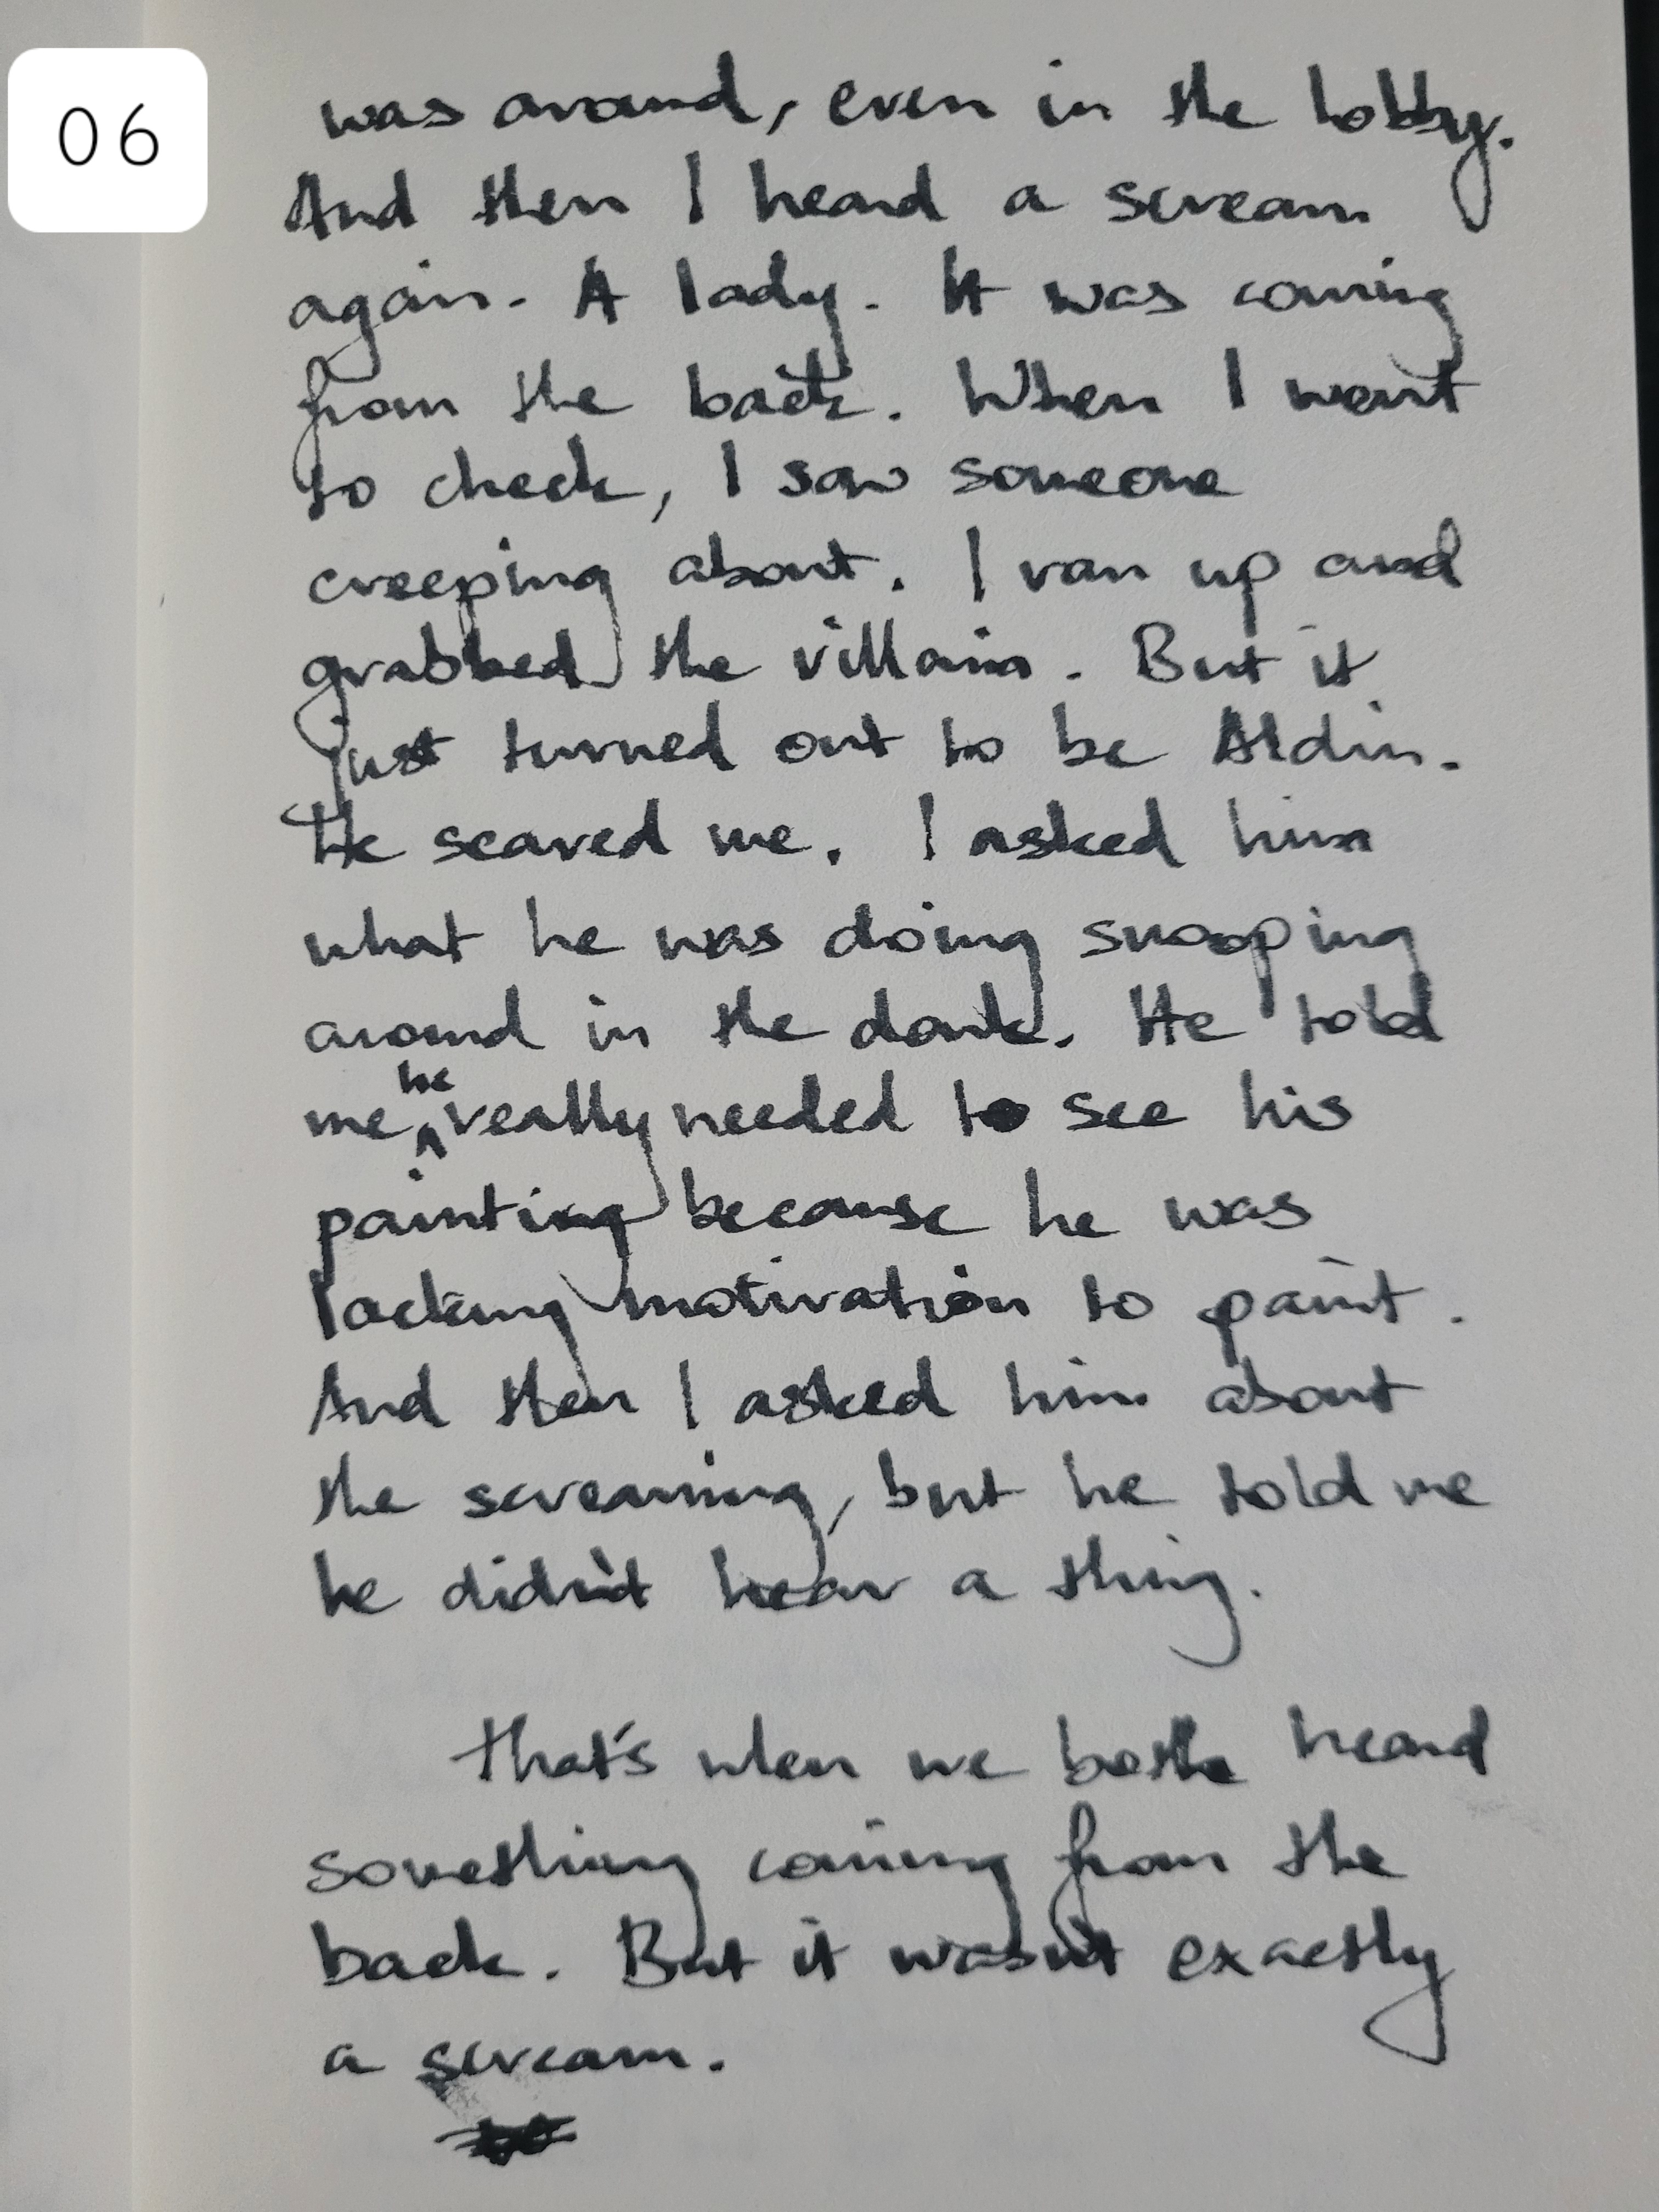 06
was around, even in the lobby.
And then I heard a scream
again. A lady. It was coming
from the back. When I went
to check, I saw someone
creeping about. I ran up and
grabbed the villain. But it
just turned out to be Aldin.
He scared me. I asked him
what he was doing snooping
around in the dark. He told
me he really needed to see his
painting because he was
lacking motivation to paint.
And then I asked him about
the screaming, but he told me
he didn't hear a thing.
That's when we both heard
something coming from the
back. But it wasn't exactly
a scream.